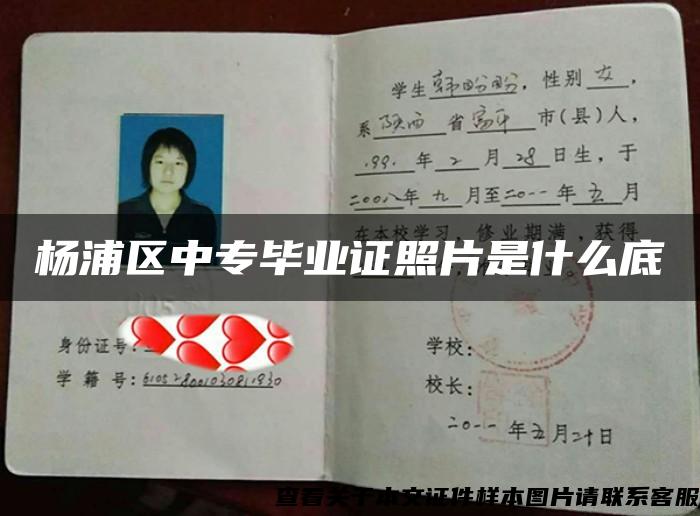 学生韩盼盼，性别女，
系陕西省富平市(县)人，
1991年2月28日生，于
二00八年九月至二0一一年五月
在本校学习，修业期满，获得
杨浦区中专毕业证照片是什么底
身份证号：
学籍号：
学校：
校长：
二0一一年五月二十日
查看关于本文证件样本图片请联系客服